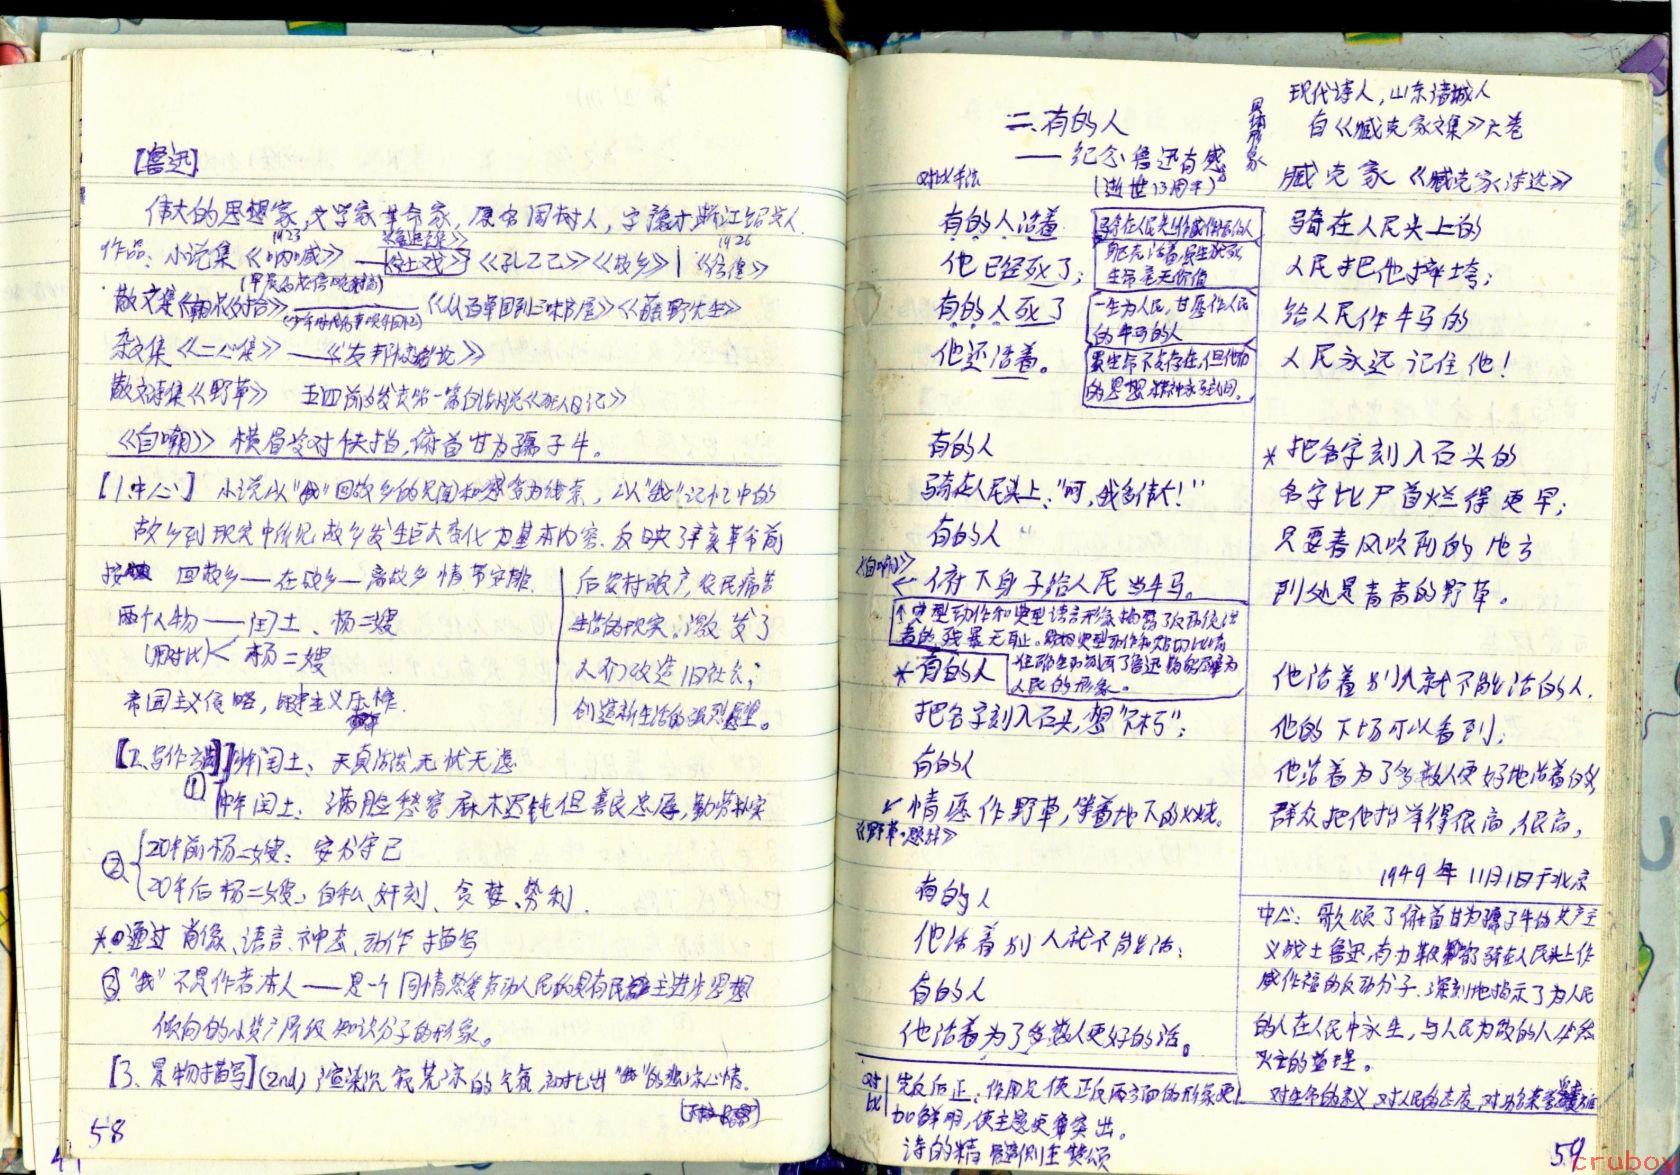 [鲁迅]
伟大的思想家,文学家,革命家,原名周树人,字豫才,浙江绍兴人.
1923
1926
作品:小说集《呐喊》——《社戏》《孔乙己》《故乡》|《彷徨》
散文集《朝花夕拾》——《从百草园到三味书屋》《藤野先生》
杂文集《二心集》——《友邦惊诧论》
散文诗集《野草》 五四前的发表第一篇白话小说《狂人日记》
《自嘲》 横眉冷对千夫指,俯首甘为孺子牛。
【1.中心】 小说以"我"回故乡的见闻和感受为线索,以"我"记忆中的
故乡到现实中所见故乡发生巨大变化为基本内容.反映了辛亥革命前
按 回故乡—在故乡—离故乡 情节安排.
两个人物——闰土、杨二嫂
(用对比)< 杨二嫂
帝国主义侵略, 主义压榨.
后农村破产,农民痛苦
生活的现实;激发了
人们改造旧社会;
创造新生活的强烈愿望。
【2.写作方 】
① 少年闰土:天真活泼,无忧无虑
中年闰土:满脸愁容,麻木迟钝但善良忠厚,勤劳朴实
② 20年前杨二嫂:安分守己
20年后杨二嫂:自私、奸刻、贪婪、势利.
*通过 肖像、语言、神态、动作 描写
③"我"不是作者本人——是一个同情热爱劳动人民和具有民主进步思想
倾向的小资产阶级知识分子的形象。
[3.景物描写](2nd) 渲染沉寂荒凉的气氛,衬托出"我"的悲凉心情.
58
二、有的人
——纪念鲁迅有感
(逝世13周年)
对比手法
现代诗人,山东诸城人
自《臧克家文集》六卷
臧克家 《臧克家诗选》
有的人活着
他已经死了;
有的人死了
他还活着。
骑在人民头上作威作福的人
躯壳活着,虽生犹死
生命毫无价值
一生为人民,甘愿作人民
的牛马的人
虽生命不复存在,但他们
的思想精神永留人间。
有的人
骑在人民头上:"呵,我多伟大!"
有的人
《自嘲》
俯下身子给人民当牛马。
典型动作和典型语言形象揭露了反动统治
者的残暴无耻。
人民的形象。
*有的人
把名字刻入石头,想"不朽";
有的人
情愿作野草,等着地下的火烧。
《野草·题辞》
有的人
他活着别人就不能活;
有的人
他活着为了多数人更好的活。
对比 先反后正:作用是使正反两方面的形象更
加鲜明,使主题更突出。
诗的精 侧重赞颂
骑在人民头上的
人民把他摔垮;
给人民作牛马的
人民永远记住他!
*把名字刻入石头的
名字比尸首烂得更早;
只要春风吹到的地方
到处是青青的野草。
他活着别人就不能活的人.
他的下场可以看到;
他活着为了多数人更好地活着的人
群众把他抬举得很高,很高,
1949年11月1日于北京
中心:歌颂了俯首甘为孺子牛的共产主
义战士鲁迅,有力鞭笞了骑在人民头上作
威作福的反动分子.深刻地揭示了为人民
的人在人民中永生,与人民为敌的人必然
灭亡的哲理。
对生命的意义 对人民的态度,对功名荣誉
59
crubox